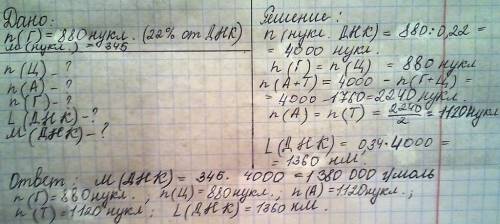 Дано:
n(Г) = 880 нукл. (22% от ДНК)
м(нукл.) = 345
n(Ц) - ?
n(А) - ?
n(Г) - ?
L(ДНК) - ?
М(ДНК) - ?
Решение:
n(нукл. ДНК) = 880:0,22 =
= 4000 нукл.
n(Г) = n(Ц) = 880 нукл
n(А+Т) = 4000 - n(Г+Ц) =
= 4000 - 1760 = 2240 нукл.
n(А) = n(Т) = 2240/2 = 1120 нукл
L(ДНК) = 034·4000 =
= 1360 нм.
М(ДНК) = 345·4000 = 1380 000 г/моль
Ответ:
n(Г) = 880 нукл., n(Ц) = 880 нукл., n(А) = 1120 нукл.;
n(Т) = 1120 нукл; L(ДНК) = 1360 нм.